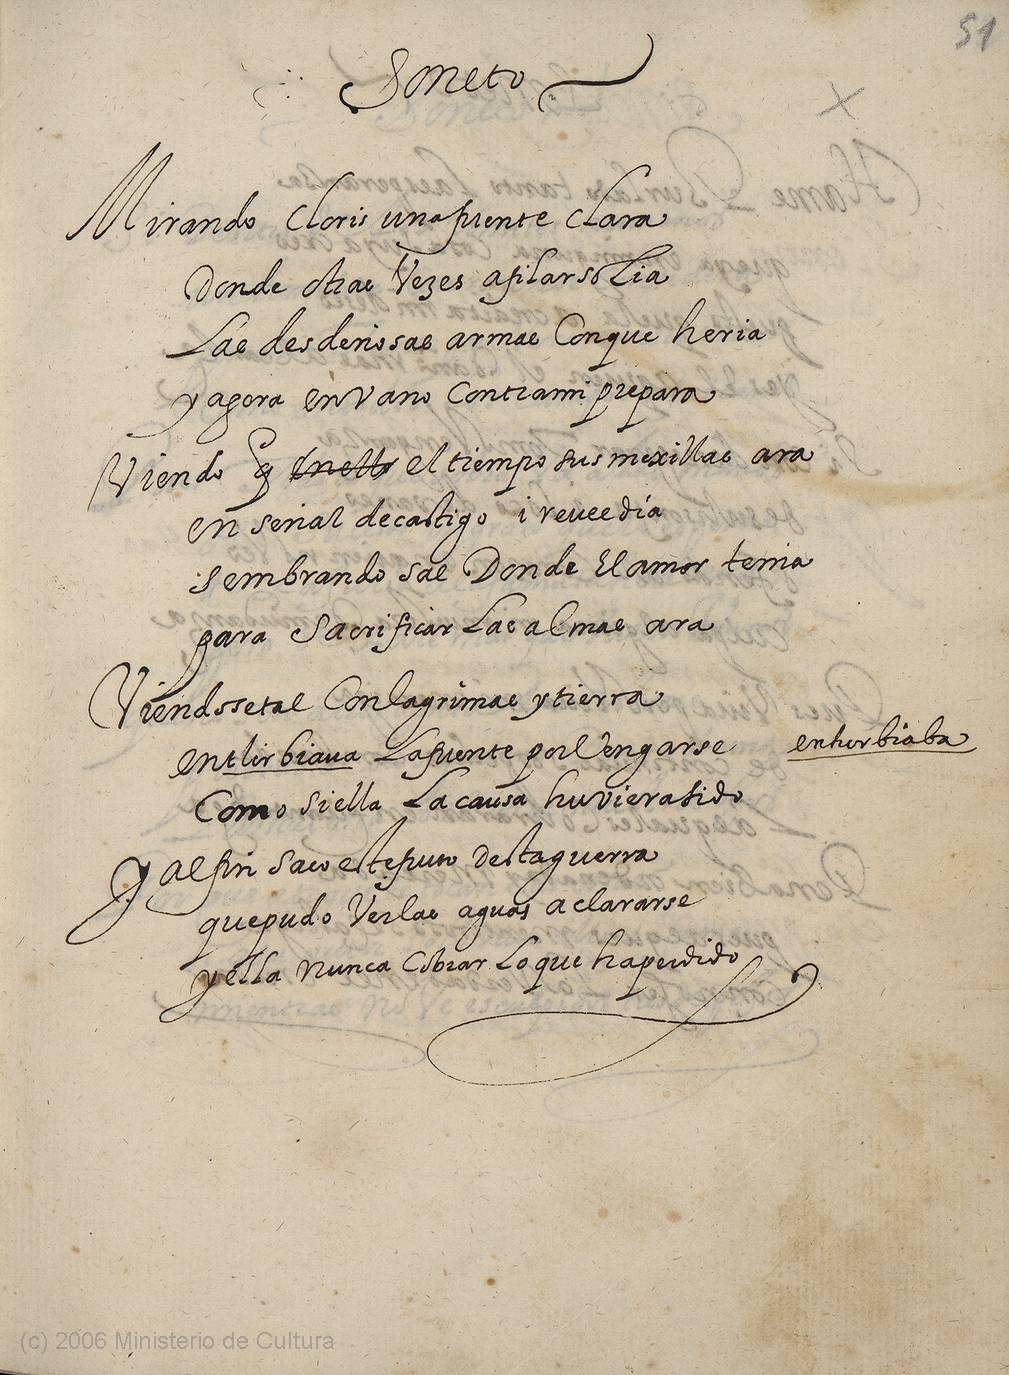 51
Soneto
Mirando Cloris una fuente clara
Donde otras Vezes afilar solia
Las desdeñosas armas Conque heria
y agora en vano contrami prepara
Viendo q̃ el tiempo sus mexillas ara
en señal de castigo i reveedia
sembrando sal Donde El amor tenia
para sacrificar Las almas ara
Viendosse tal Con lagrimas y tierra
enturbiaua La fuente por Vengarse
enturbiaba
Como si ella La causa huviera sido
y al fin saco este fruto desta guerra
que pudo Ver las aguas aclararse
y ella nunca Cobrar Lo que ha perdido
(c) 2006 Ministerio de Cultura